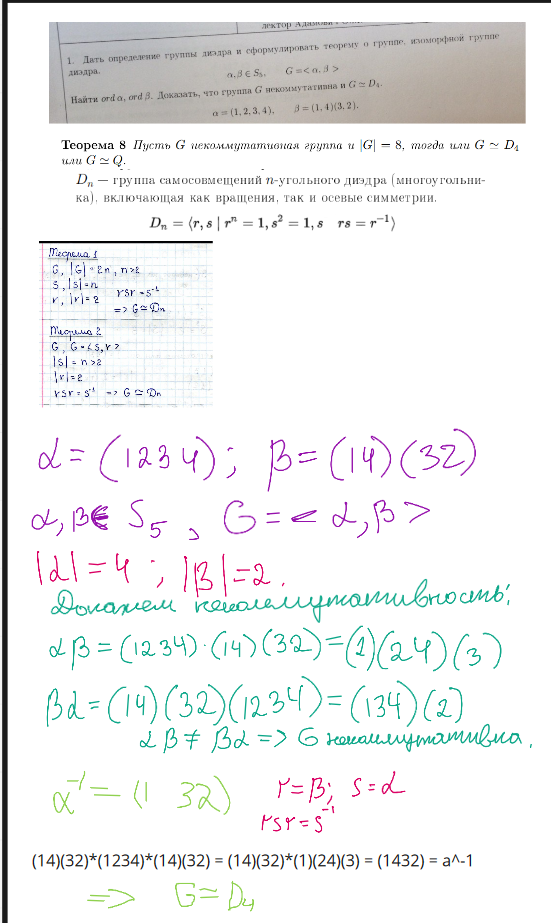 лектор Адамова
1. Дать определение группы диэдра и сформулировать теорему о группе, изоморфной группе
диэдра.
α, β ∈ S₅, G =< α, β >
Найти ord α, ord β. Доказать, что группа G некоммутативна и G ≃ D₄.
α = (1, 2, 3, 4), β = (1, 4)(3, 2).
Теорема 8 Пусть G некоммутативная группа и |G| = 8, тогда или G ≃ D₄
или G ≃ Q.
Dₙ — группа самосовмещений n-угольного диэдра (многоугольни-
ка), включающая как вращения, так и осевые симметрии.
Dₙ = ⟨r, s | rⁿ = 1, s² = 1, s rs = r⁻¹⟩
Теорема 1
G, |G| = 2n, n>2
s, |s| = n
r, |r| = 2 rsr = s⁻¹
=> G ≃ Dₙ
Теорема 2
G, G = <s, r>
|s| = n > 2
|r| = 2
rsr = s⁻¹ => G ≃ Dₙ
α = (1234); β = (14)(32)
α, β ∈ S₅, G = < α, β >
|α| = 4 ; |β| = 2.
Докажем некоммутативность:
αβ = (1234)·(14)(32) = (1)(24)(3)
βα = (14)(32)(1234) = (134)(2)
αβ ≠ βα => G некоммутативна.
α⁻¹ = (1 32) r = β; s = α
rsr = s⁻¹
(14)(32)*(1234)*(14)(32) = (14)(32)*(1)(24)(3) = (1432) = a^-1
=> G ≃ D₄